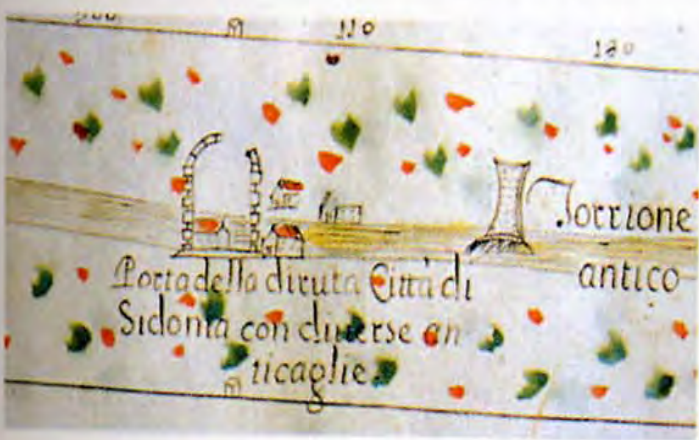 110
180
Torrione
antico
Porta della diruta Città di
Sidonia con diuerse an
ticaglie